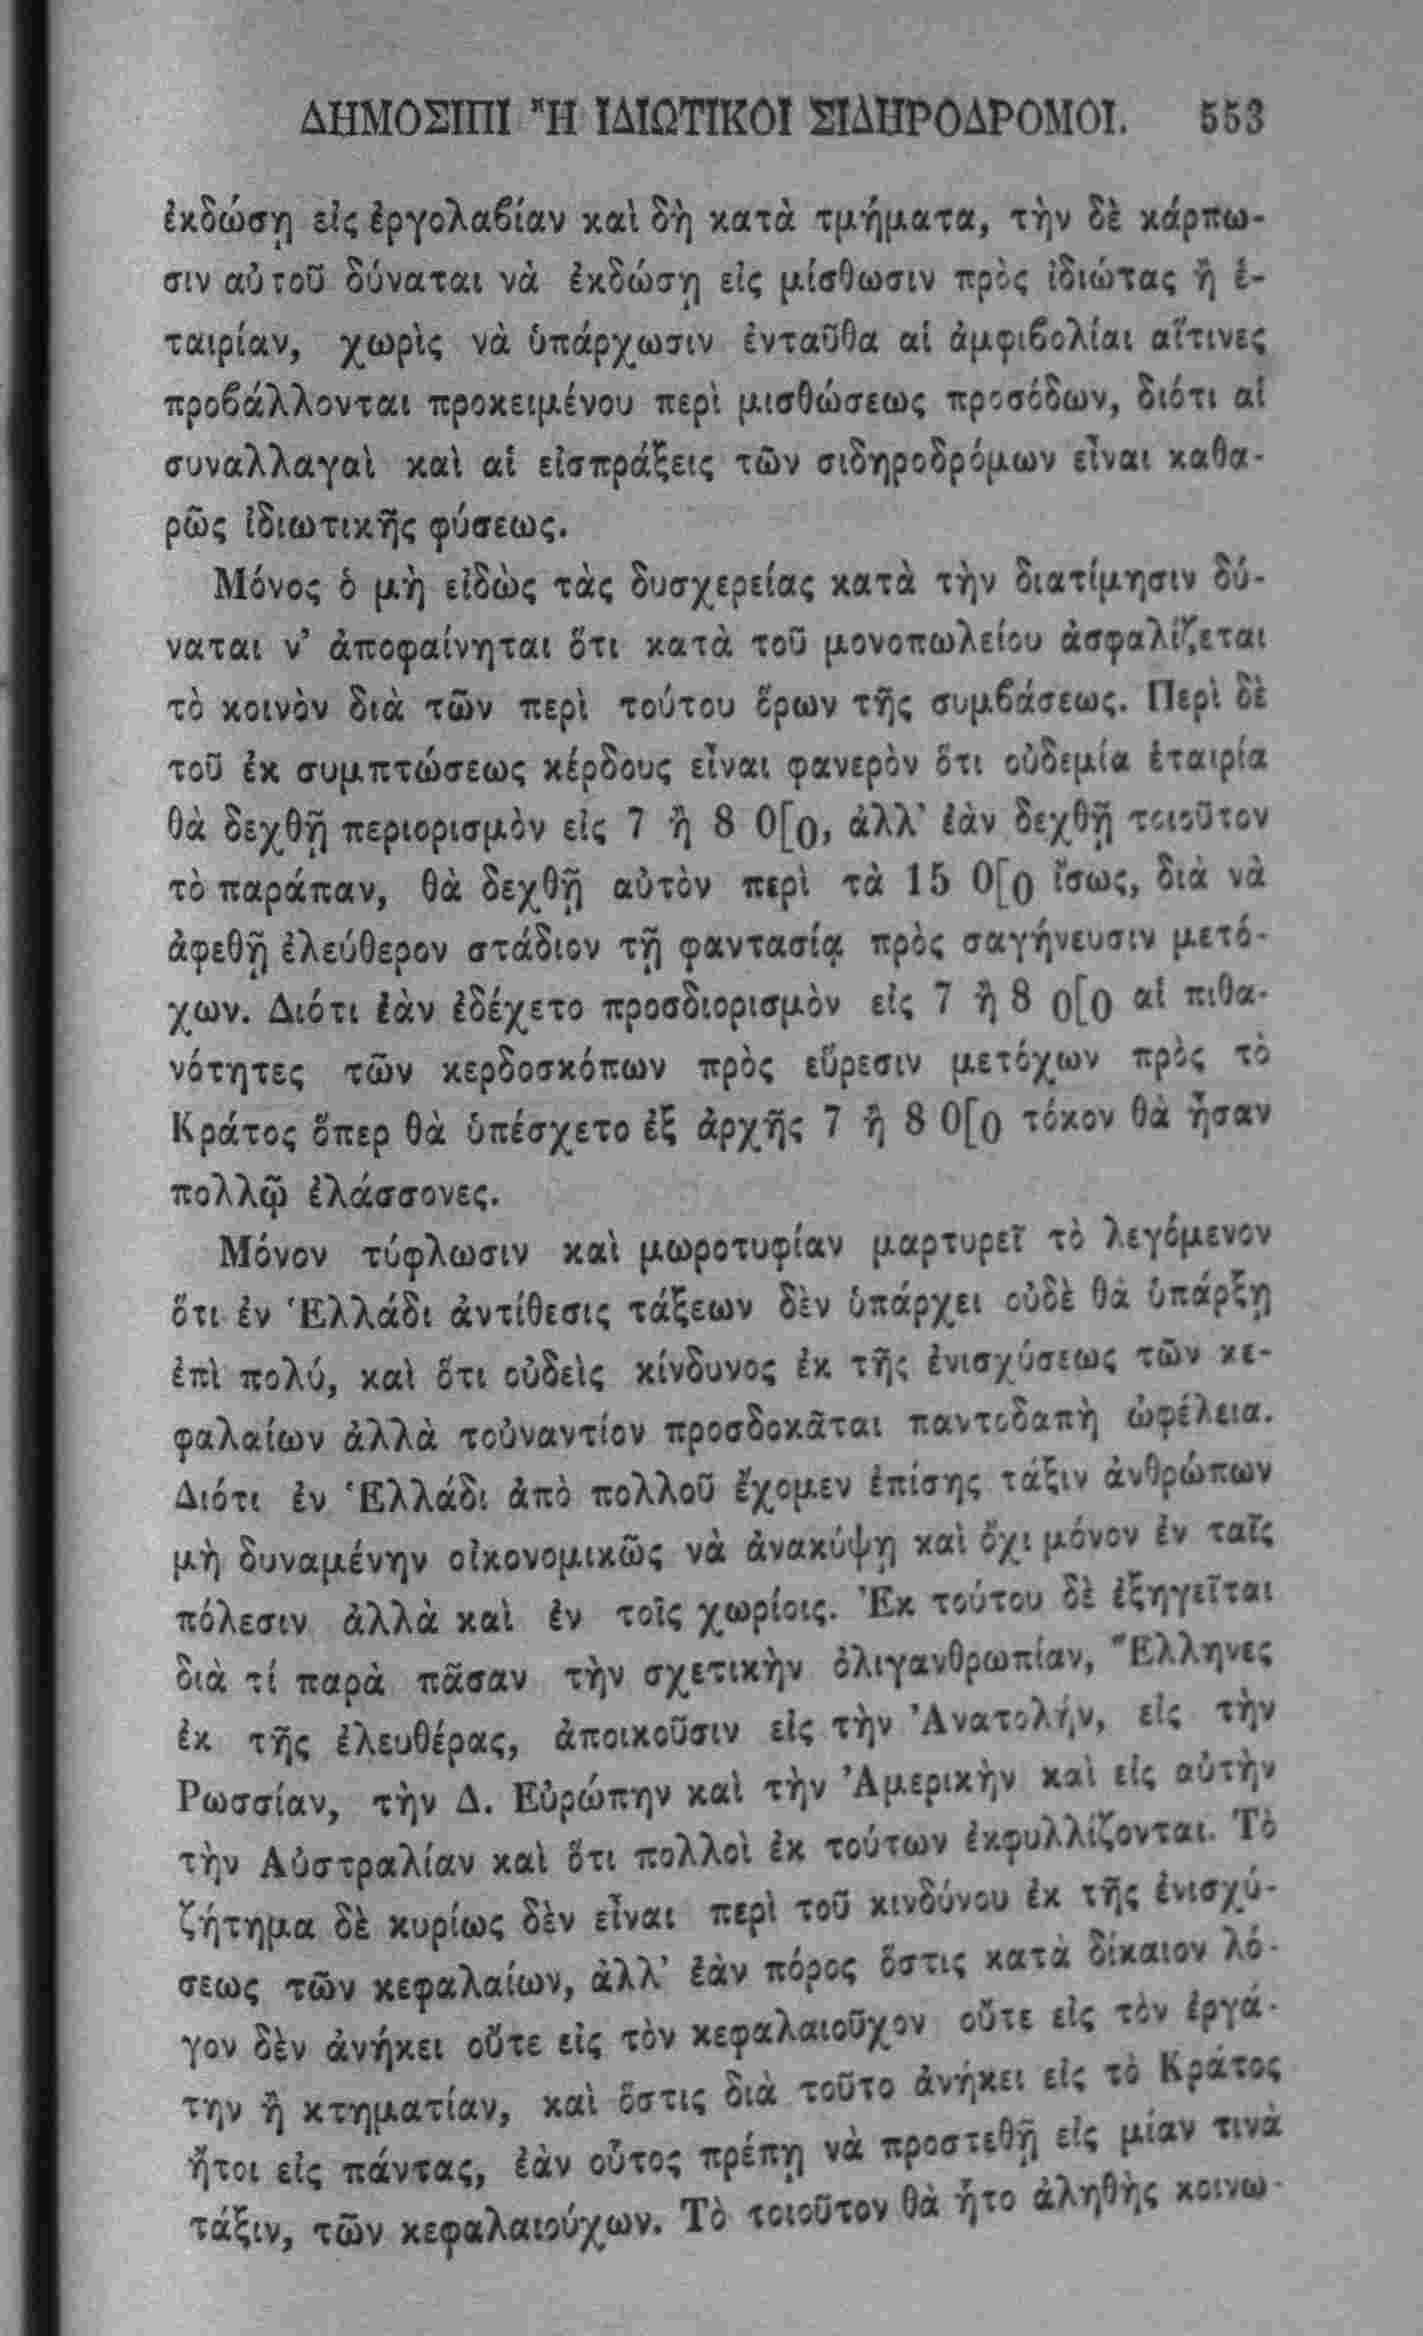 ΔΗΜΟΣΙΠΙ Ἢ ΙΔΙΩΤΙΚΟΙ ΣΙΔΗΡΟΔΡΟΜΟΙ. 553
ἐκδώσῃ εἰς ἐργολαβίαν καὶ δὴ κατὰ τμήματα, τὴν δὲ κάρπω-
σιν αὐτοῦ δύναται νὰ ἐκδώσῃ εἰς μίσθωσιν πρὸς ἰδιώτας ἢ ἑ-
ταιρίαν, χωρὶς νὰ ὑπάρχωσιν ἐνταῦθα αἱ ἀμφιβολίαι αἵτινες
προβάλλονται προκειμένου περὶ μισθώσεως προσόδων, διότι αἱ
συναλλαγαὶ καὶ αἱ εἰσπράξεις τῶν σιδηροδρόμων εἶναι καθα-
ρῶς ἰδιωτικῆς φύσεως.
Μόνος ὁ μὴ εἰδὼς τὰς δυσχερείας κατὰ τὴν διατίμησιν δύ-
ναται ν’ ἀποφαίνηται ὅτι κατὰ τοῦ μονοπωλείου ἀσφαλίζεται
τὸ κοινὸν διὰ τῶν περὶ τούτου ὅρων τῆς συμβάσεως. Περὶ δὲ
τοῦ ἐκ συμπτώσεως κέρδους εἶναι φανερὸν ὅτι οὐδεμία ἑταιρία
θὰ δεχθῇ περιορισμὸν εἰς 7 ἢ 8 0[0, ἀλλ’ ἐὰν δεχθῇ τοιοῦτον
τὸ παράπαν, θὰ δεχθῇ αὐτὸν περὶ τὰ 15 0[0 ἴσως, διὰ νὰ
ἀφεθῇ ἐλεύθερον στάδιον τῇ φαντασίᾳ πρὸς σαγήνευσιν μετό-
χων. Διότι ἐὰν ἐδέχετο προσδιορισμὸν εἰς 7 ἢ 8 0[0 αἱ πιθα-
νότητες τῶν κερδοσκόπων πρὸς εὕρεσιν μετόχων πρὸς τὸ
Κράτος ὅπερ θὰ ὑπέσχετο ἐξ ἀρχῆς 7 ἢ 8 0[0 τόκον θὰ ἦσαν
πολλῷ ἐλάσσονες.
Μόνον τύφλωσιν καὶ μωροτυφίαν μαρτυρεῖ τὸ λεγόμενον
ὅτι ἐν Ἑλλάδι ἀντίθεσις τάξεων δὲν ὑπάρχει οὐδὲ θὰ ὑπάρξῃ
ἐπὶ πολύ, καὶ ὅτι οὐδεὶς κίνδυνος ἐκ τῆς ἐνισχύσεως τῶν κε-
φαλαίων ἀλλὰ τοὐναντίον προσδοκᾶται παντοδαπὴ ὠφέλεια.
Διότι ἐν Ἑλλάδι ἀπὸ πολλοῦ ἔχομεν ἐπίσης τάξιν ἀνθρώπων
μὴ δυναμένην οἰκονομικῶς νὰ ἀνακύψῃ καὶ ὄχι μόνον ἐν ταῖς
πόλεσιν ἀλλὰ καὶ ἐν τοῖς χωρίοις. Ἐκ τούτου δὲ ἐξηγεῖται
διὰ τί παρὰ πᾶσαν τὴν σχετικὴν ὀλιγανθρωπίαν, Ἕλληνες
ἐκ τῆς ἐλευθέρας, ἀποικοῦσιν εἰς τὴν Ἀνατολήν, εἰς τὴν
Ρωσσίαν, τὴν Δ. Εὐρώπην καὶ τὴν Ἀμερικὴν καὶ εἰς αὐτὴν
τὴν Αὐστραλίαν καὶ ὅτι πολλοὶ ἐκ τούτων ἐκφυλλίζονται. Τὸ
ζήτημα δὲ κυρίως δὲν εἶναι περὶ τοῦ κινδύνου ἐκ τῆς ἐνισχύ-
σεως τῶν κεφαλαίων, ἀλλ’ ἐὰν πόρος ὅστις κατὰ δίκαιον λό-
γον δὲν ἀνήκει οὔτε εἰς τὸν κεφαλαιοῦχον οὔτε εἰς τὸν ἐργά-
την ἢ κτηματίαν, καὶ ὅστις διὰ τοῦτο ἀνήκει εἰς τὸ Κράτος
ἤτοι εἰς πάντας, ἐὰν οὗτος πρέπῃ νὰ προστεθῇ εἰς μίαν τινὰ
τάξιν, τῶν κεφαλαιούχων. Τὸ τοιοῦτον θὰ ἦτο ἀληθὴς κοινω-